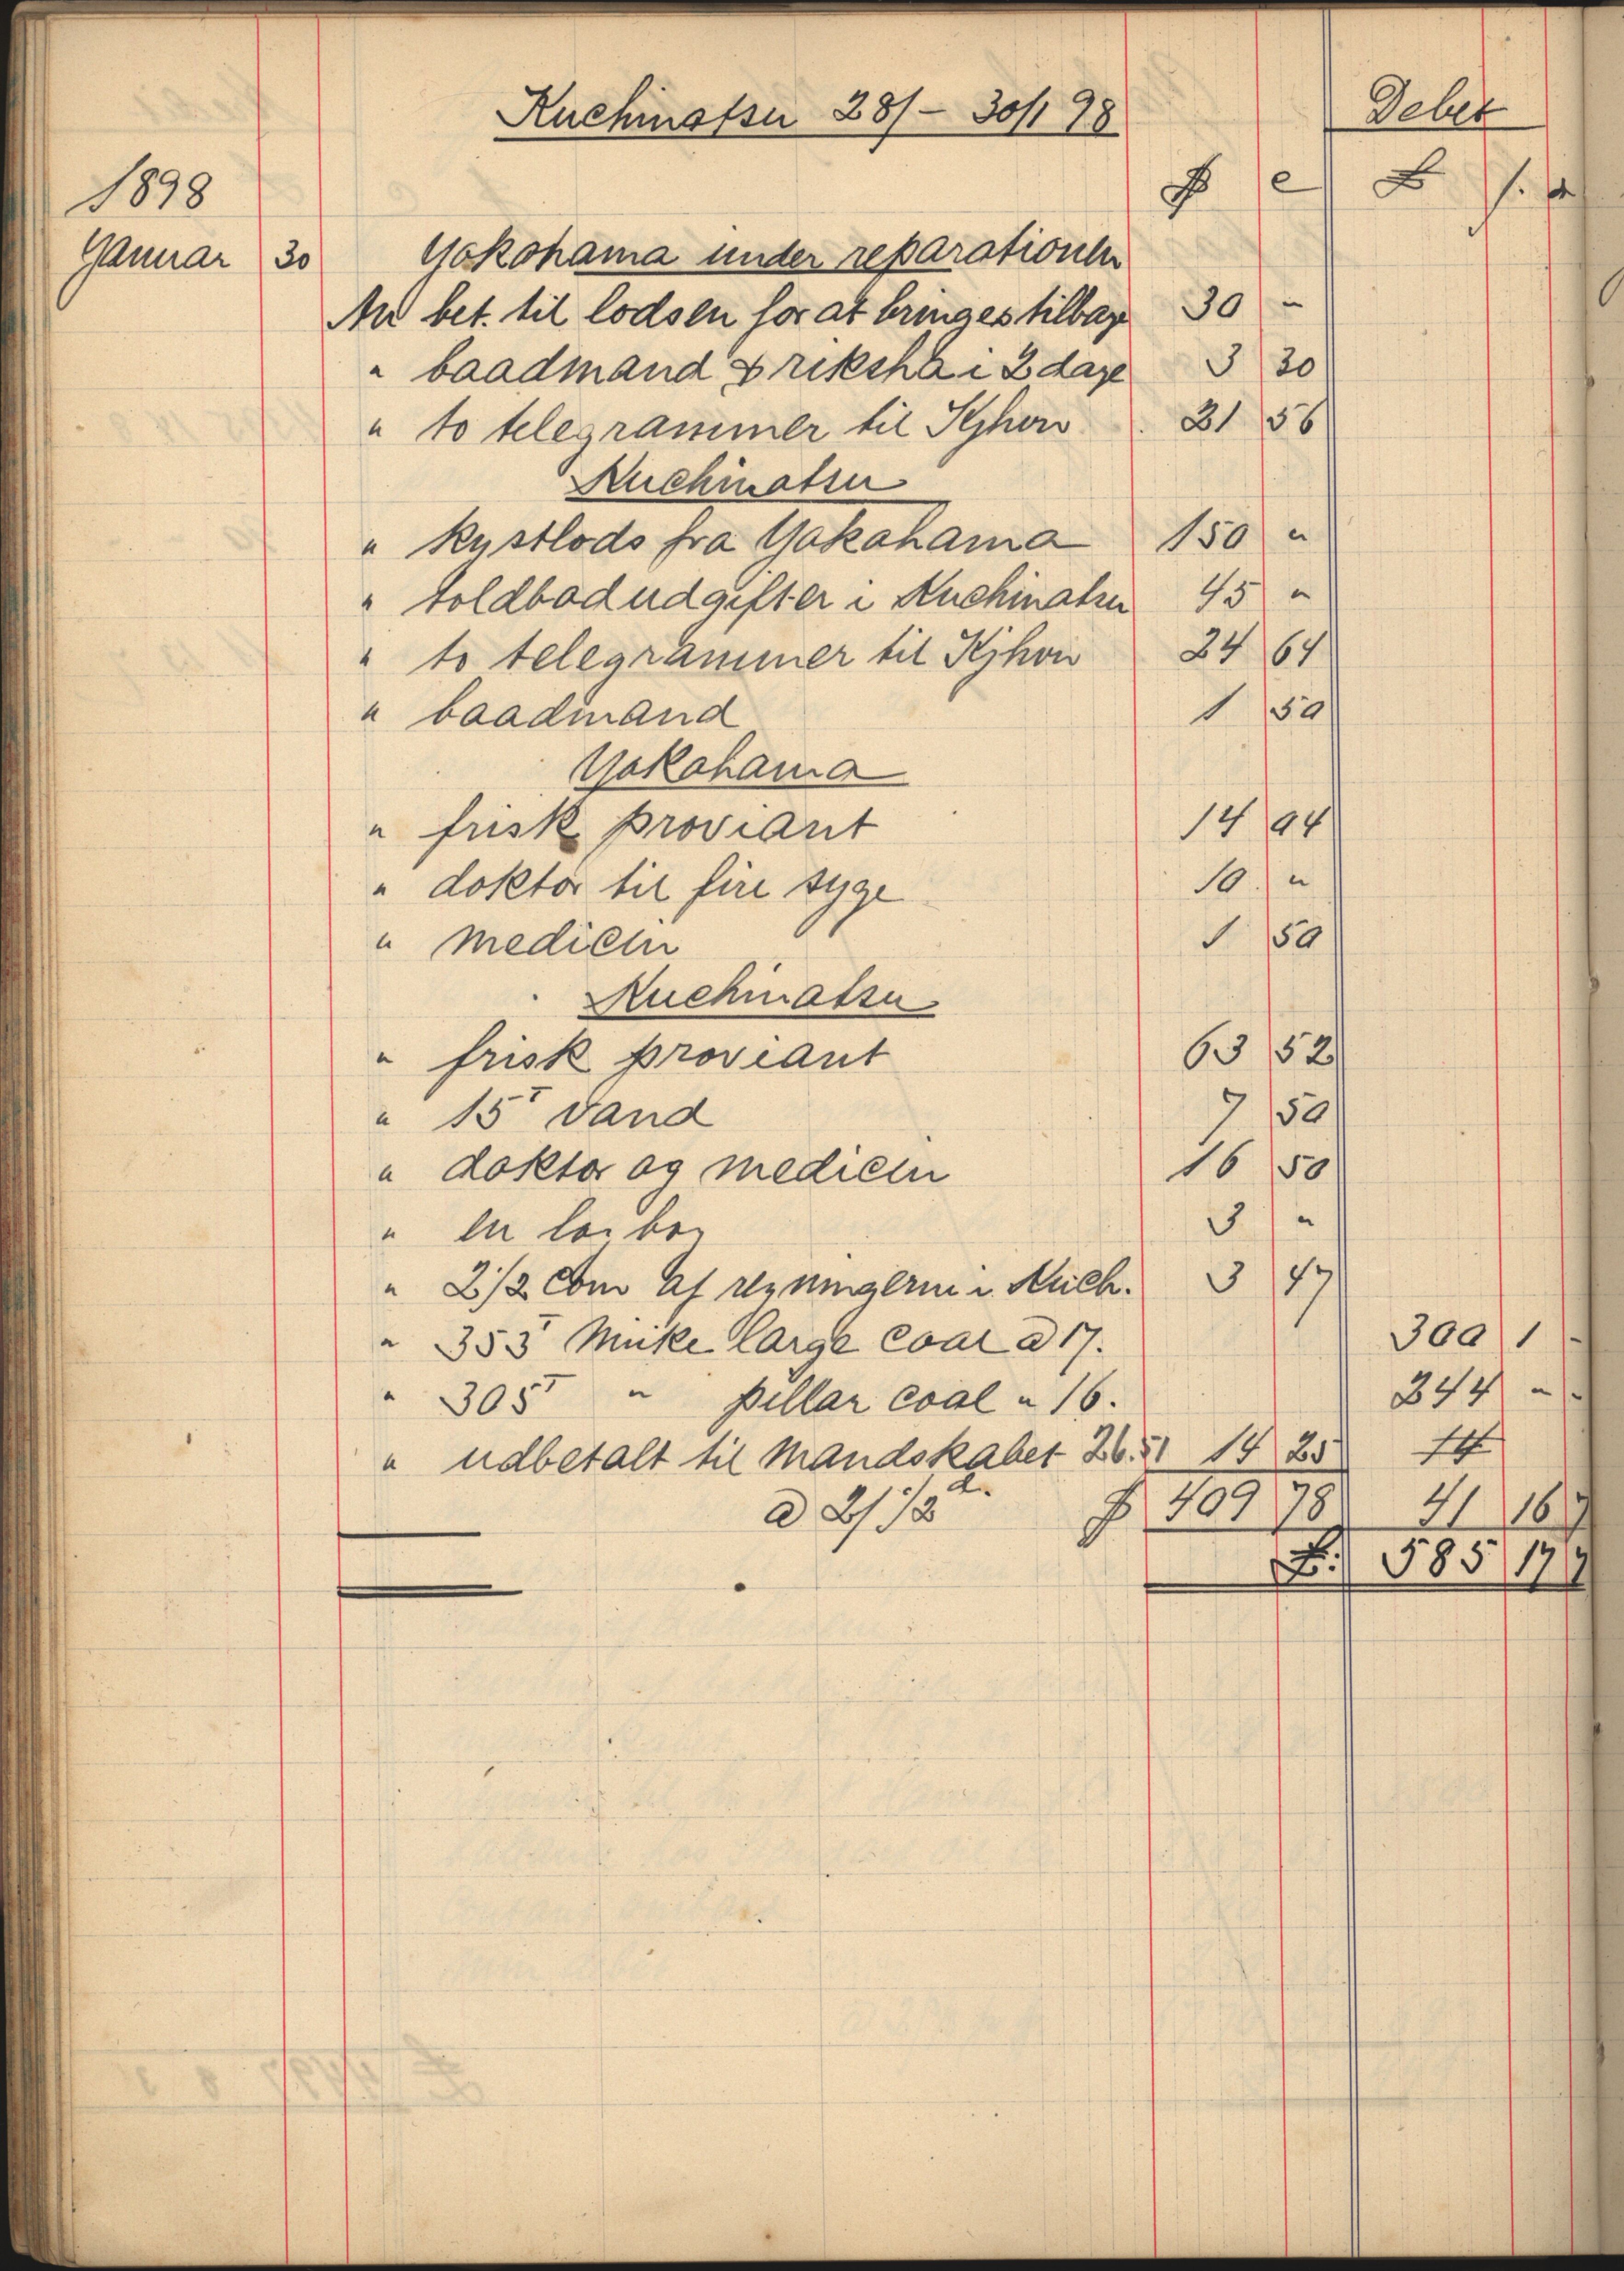 Kuchinotsu 28/ - 30/1 98 Debet
1898 $ c £ s. d
Januar 30 Yokohama under reparationen
An bet. til lodsen for at bringes tilbage 30 -
" baadmand & riksha i 2 dage 3 30
" to telegrammer til Kjhvn 21 56
Kuchinotsu
" kystlods fra Yokohama 150 "
" toldbodudgifter i Kuchinotsu 45 "
" to telegrammer til Kjhvn 24 64
" baadmand 1 50
Yokohama
" frisk proviant 14 94
" doktor til fire syge 10 "
" medicin 1 50
Kuchinotsu
" frisk proviant 63 52
" 15T vand 7 50
" doktor og medicin 16 50
" en 3 "
" 2 1/2 Com af regningerne i Kuch. 3 47
" 353T Miike large coal a 17. 300 1 -
" 305T " pillar coal " 16. 244 " -
" udbetalt til mandskabet 26.51 14 25
a 2/ 1/2 d. $ 409 78 41 16 7
£. 585 17 7